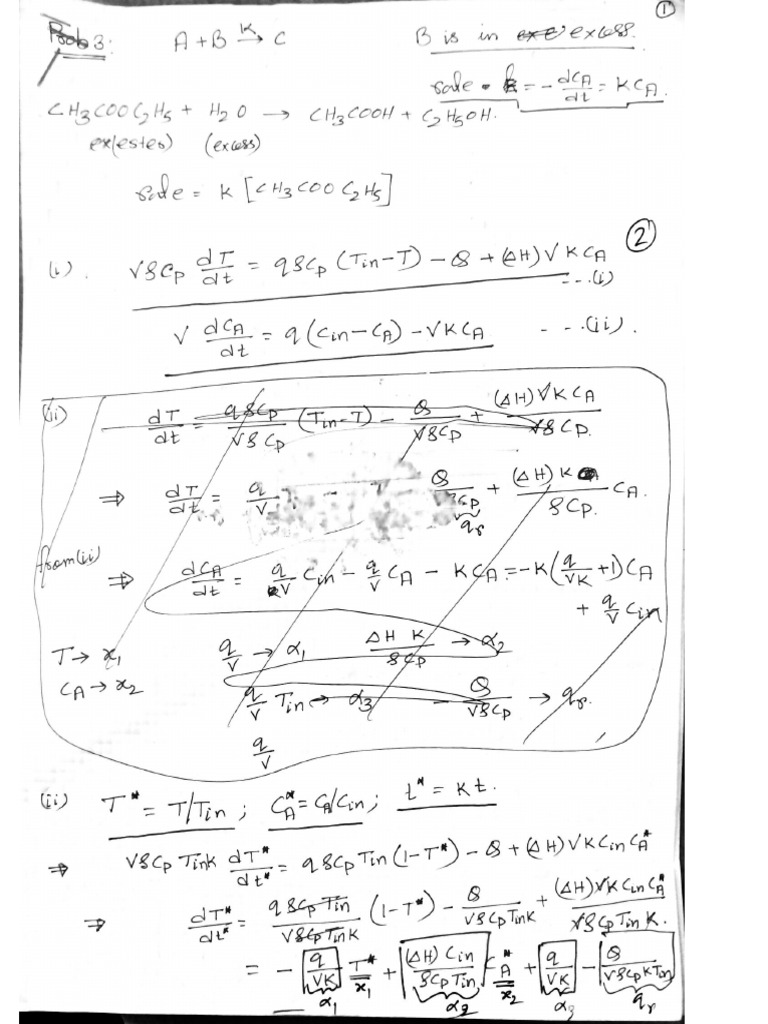 ①
Prob 3: A + B →K C B is in excess.
rate = - dCA/dt = KCA.
CH3COOC2H5 + H2O → CH3COOH + C2H5OH.
(ester) (excess)
rate = K [CH3COOC2H5]
②
(i). VρCp dT/dt = qρCp (Tin-T) - Q + (ΔH)VKCA ...(i)
V dCA/dt = q(Cin-CA) - VKCA ...(ii).
(ii) dT/dt = qρCp/VρCp (Tin-T) - Q/VρCp + (ΔH)VKCA/VρCp.
⇒ dT/dt = q/V Q/VρCp + (ΔH)K/ρCp. CA.
qr
from (ii) ⇒ dCA/dt = q/V Cin - q/V CA - KCA = -K(q/VK +1)CA
+ q/V Cin
T → x1 q/V → α1 ΔH K/ρCp → α2
CA → x2 q/V Tin → α3 - Q/VρCp → qr.
q/V
(ii) T* = T/Tin ; CA* = CA/Cin ; t* = Kt.
⇒ VρCp TinK dT*/dt* = qρCpTin(1-T*) - Q + (ΔH)VKCinCA*
⇒ dT*/dt* = qρCpTin/VρCpTinK (1-T*) - Q/VρCpTinK + (ΔH)VKCinCA*/VρCpTinK.
= - q/VK T* + (ΔH)Cin/ρCpTin CA* + q/VK - Q/VρCpKTin
α1 x1 α2 x2 α3 qr